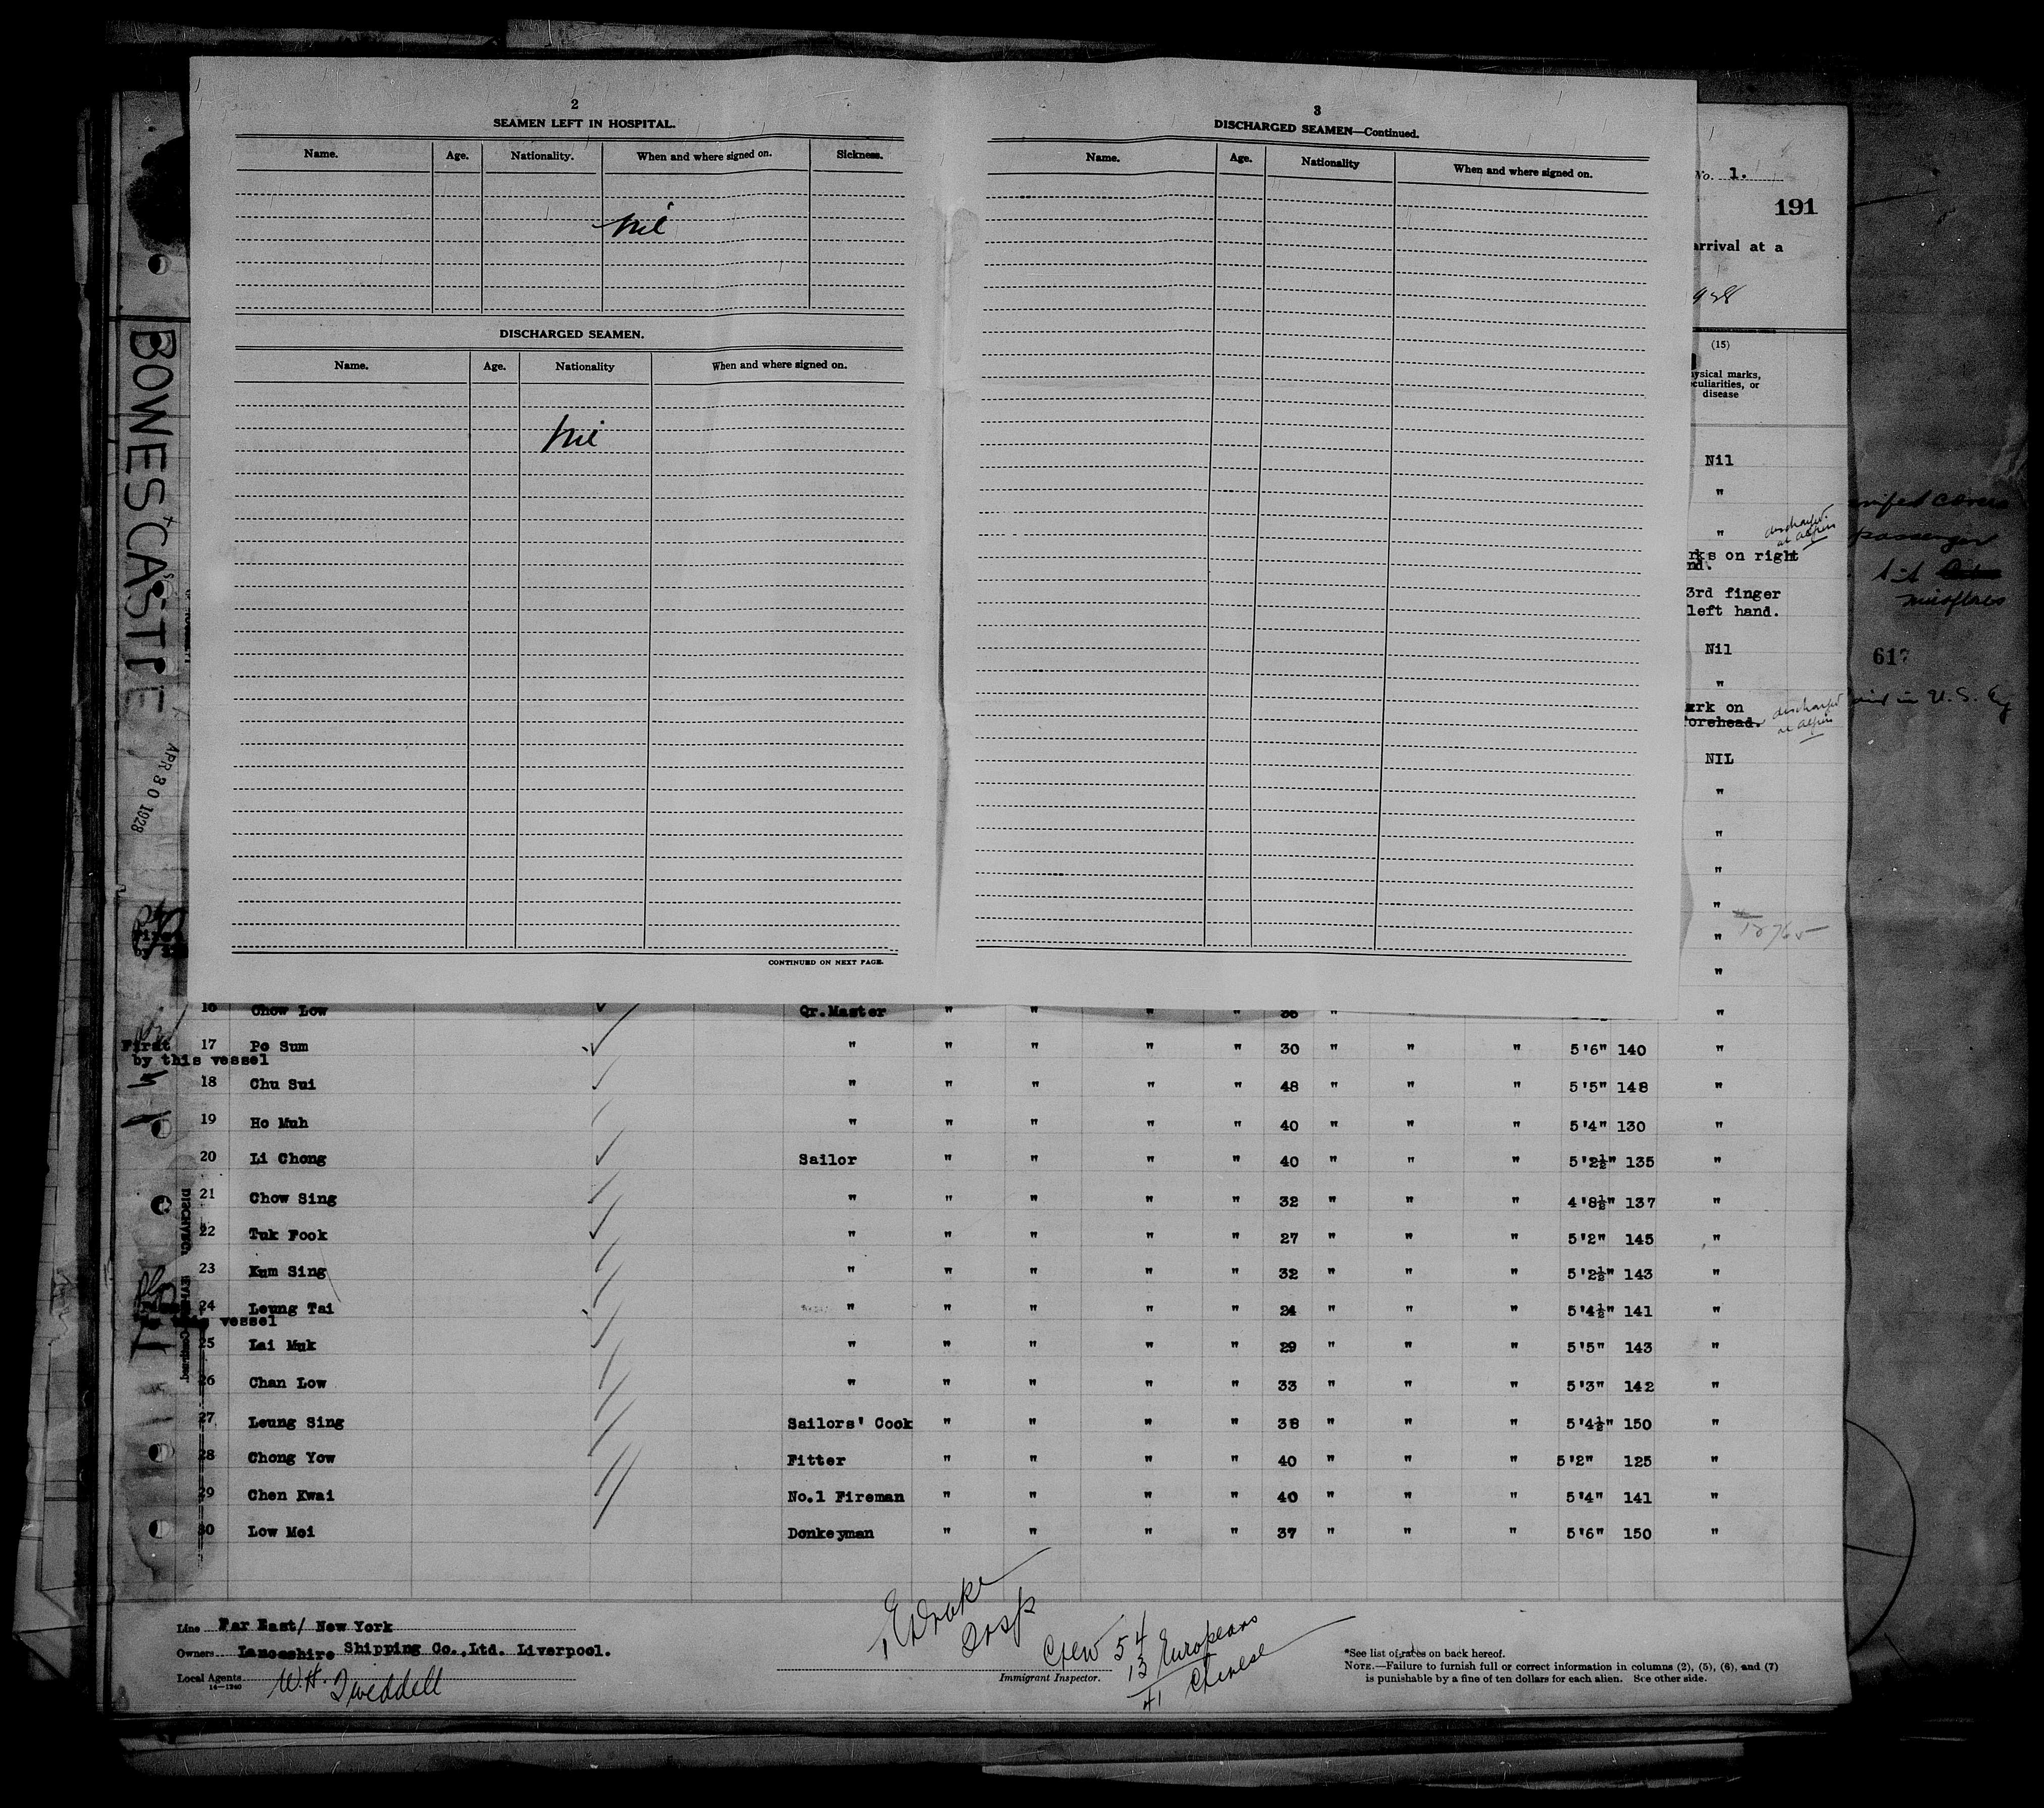 2
SEAMEN LEFT IN HOSPITAL.
Name. Age. Nationality. When and where signed on. Sickness.
nil
DISCHARGED SEAMEN.
Name. Age. Nationality When and where signed on.
nil
CONTINUED ON NEXT PAGE.
3
DISCHARGED SEAMEN—Continued.
Name. Age. Nationality When and where signed on.
No. 1.
191
arrival at a
(15)
disease
Nil
"
"
discharged
rks on right
nd.
3rd finger
left hand.
Nil
"
ark on
forehead.
discharged
NIL
"
"
"
"
"
"
passenger
617
in U.S.
BOWES CASTLE
APR 30 1928
16 Chow Low Qr.Master " " " " 35 " " "
First
17 Po Sum " " " " " 30 " " " 5'6" 140 "
by this vessel
18 Chu Sui " " " " " 48 " " " 5'5" 148 "
19 Ho Muh " " " " " 40 " " " 5'4" 130 "
20 Li Chong Sailor " " " " 40 " " " 5'2½" 135 "
21 Chow Sing " " " " " 32 " " " 4'8½" 137 "
22 Tuk Fook " " " " " 27 " " " 5'2" 145 "
23 Kum Sing " " " " " 32 " " " 5'2½" 143 "
24 Leung Tai " " " " " 24 " " " 5'4½" 141 "
this vessel
25 Lai Muk " " " " " 29 " " " 5'5" 143 "
26 Chan Low " " " " " 33 " " " 5'3" 142 "
27 Leung Sing Sailors' Cook " " " " 38 " " " 5'4½" 150 "
28 Chong Yow Fitter " " " " 40 " " " 5'2" 125 "
29 Chen Kwai No.1 Fireman " " " " 40 " " " 5'4" 141 "
30 Low Moi Donkeyman " " " " 37 " " " 5'6" 150 "
Line Far East/ New York
Owners Lancashire Shipping Co.,Ltd. Liverpool.
Local Agents W.H. Tweddell
14—1240
Immigrant Inspector.
Crew 54
13 Europeans
41 Chinese
*See list of races on back hereof.
NOTE.—Failure to furnish full or correct information in columns (2), (5), (6), and (7)
is punishable by a fine of ten dollars for each alien. See other side.